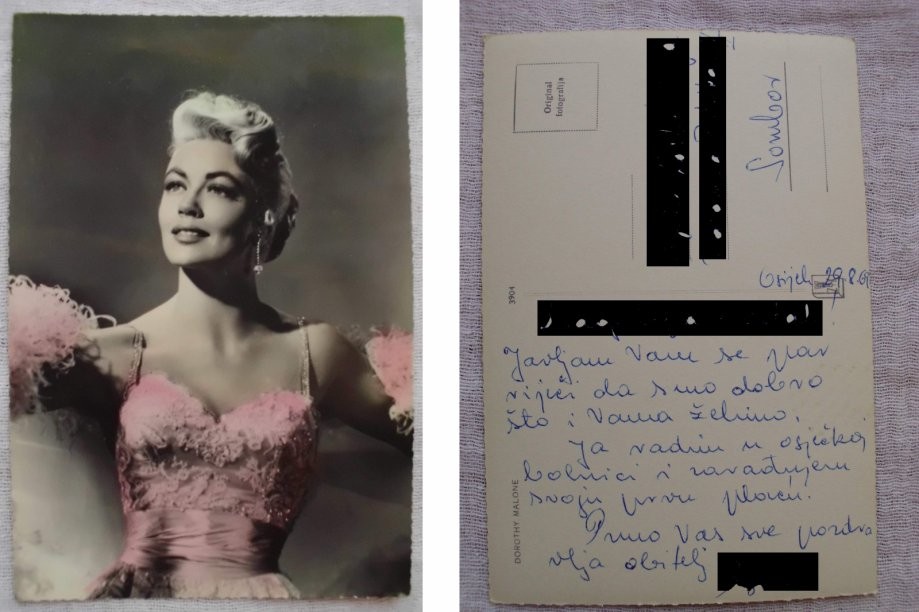 Original
fotografija
Sombor
Osijek 29.8.61
3904
Javljam Vam se par
riječi da smo dobro
što i Vama želimo.
Ja radim u osječkoj
bolnici i zarađujem
svoju prvu plaću.
Puno Vas sve pozdra
vlja obitelj
DOROTHY MALONE